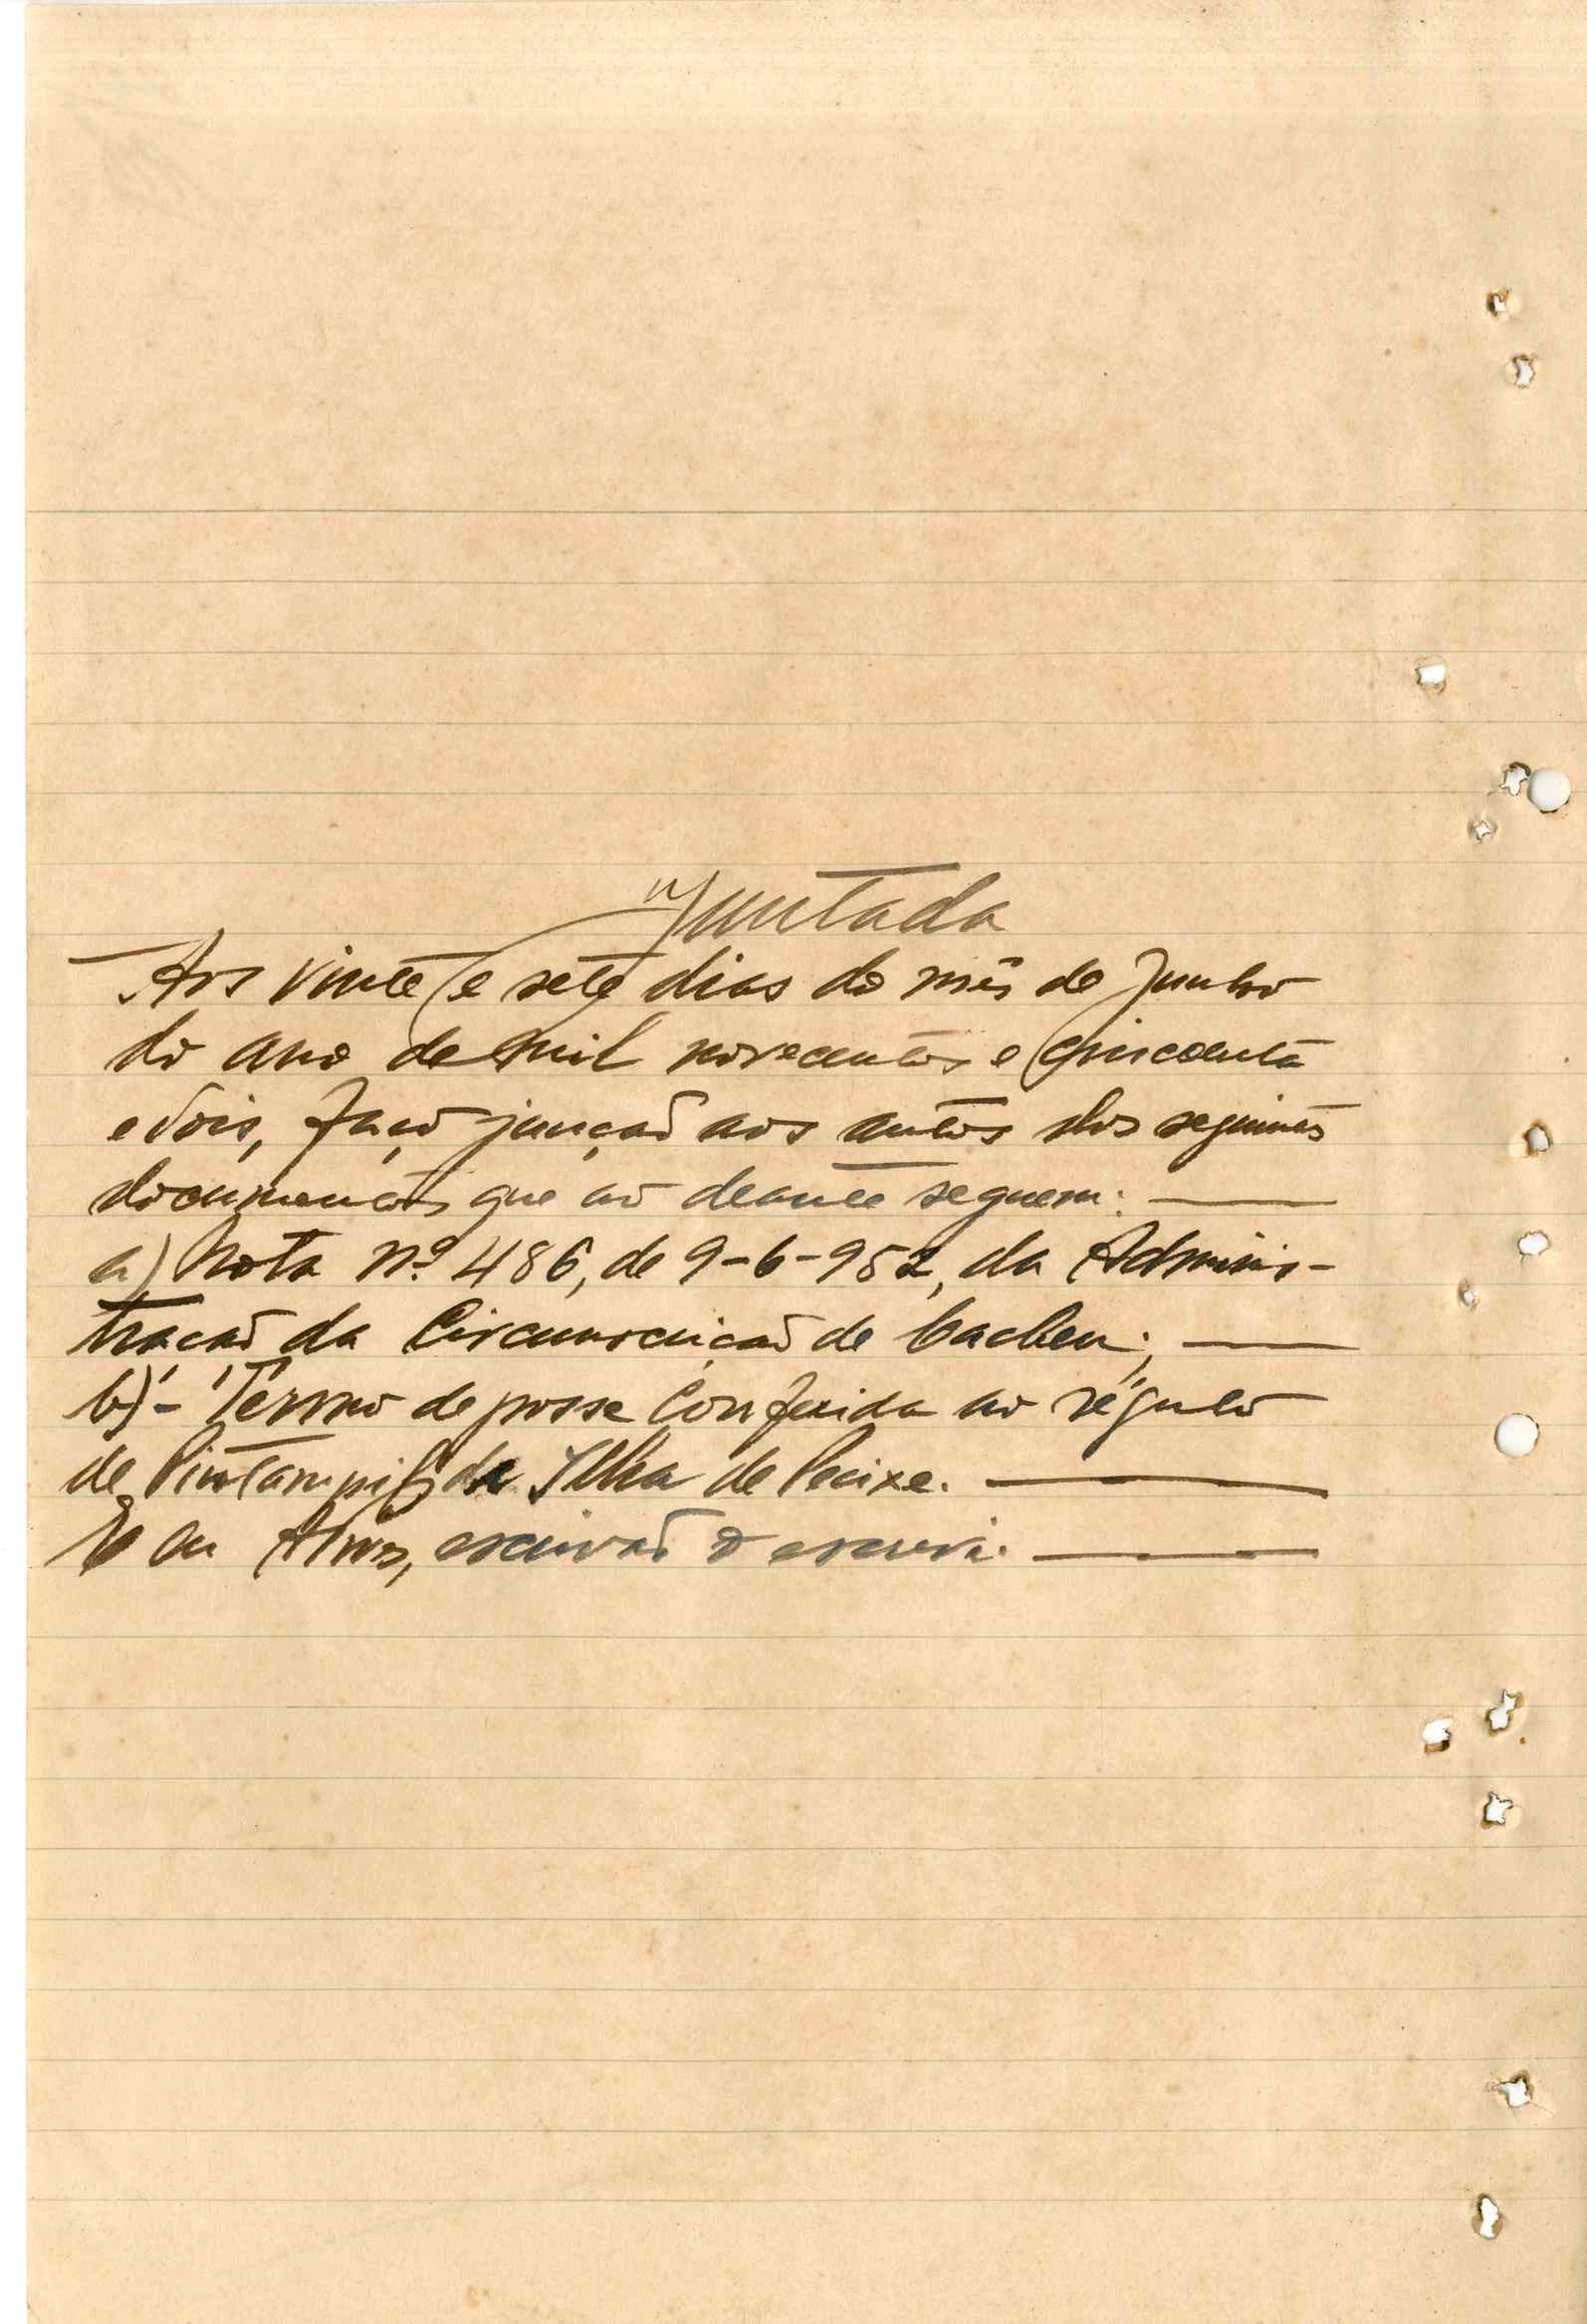 Juntada
Aos vinte e sete dias do mês de Junho
do ano de mil novecentos e cincoenta
e dois, faço junção aos autos dos seguintes
documentos que ao deante seguem:
a) Nota nº 486, de 9-6-952, da Adminis-
tração da Circunscrição de Cacheu;
b)- Termo de posse conferida ao régulo
de da Ilha de Pecixe.
E eu Alves, escrivão o escrevi.